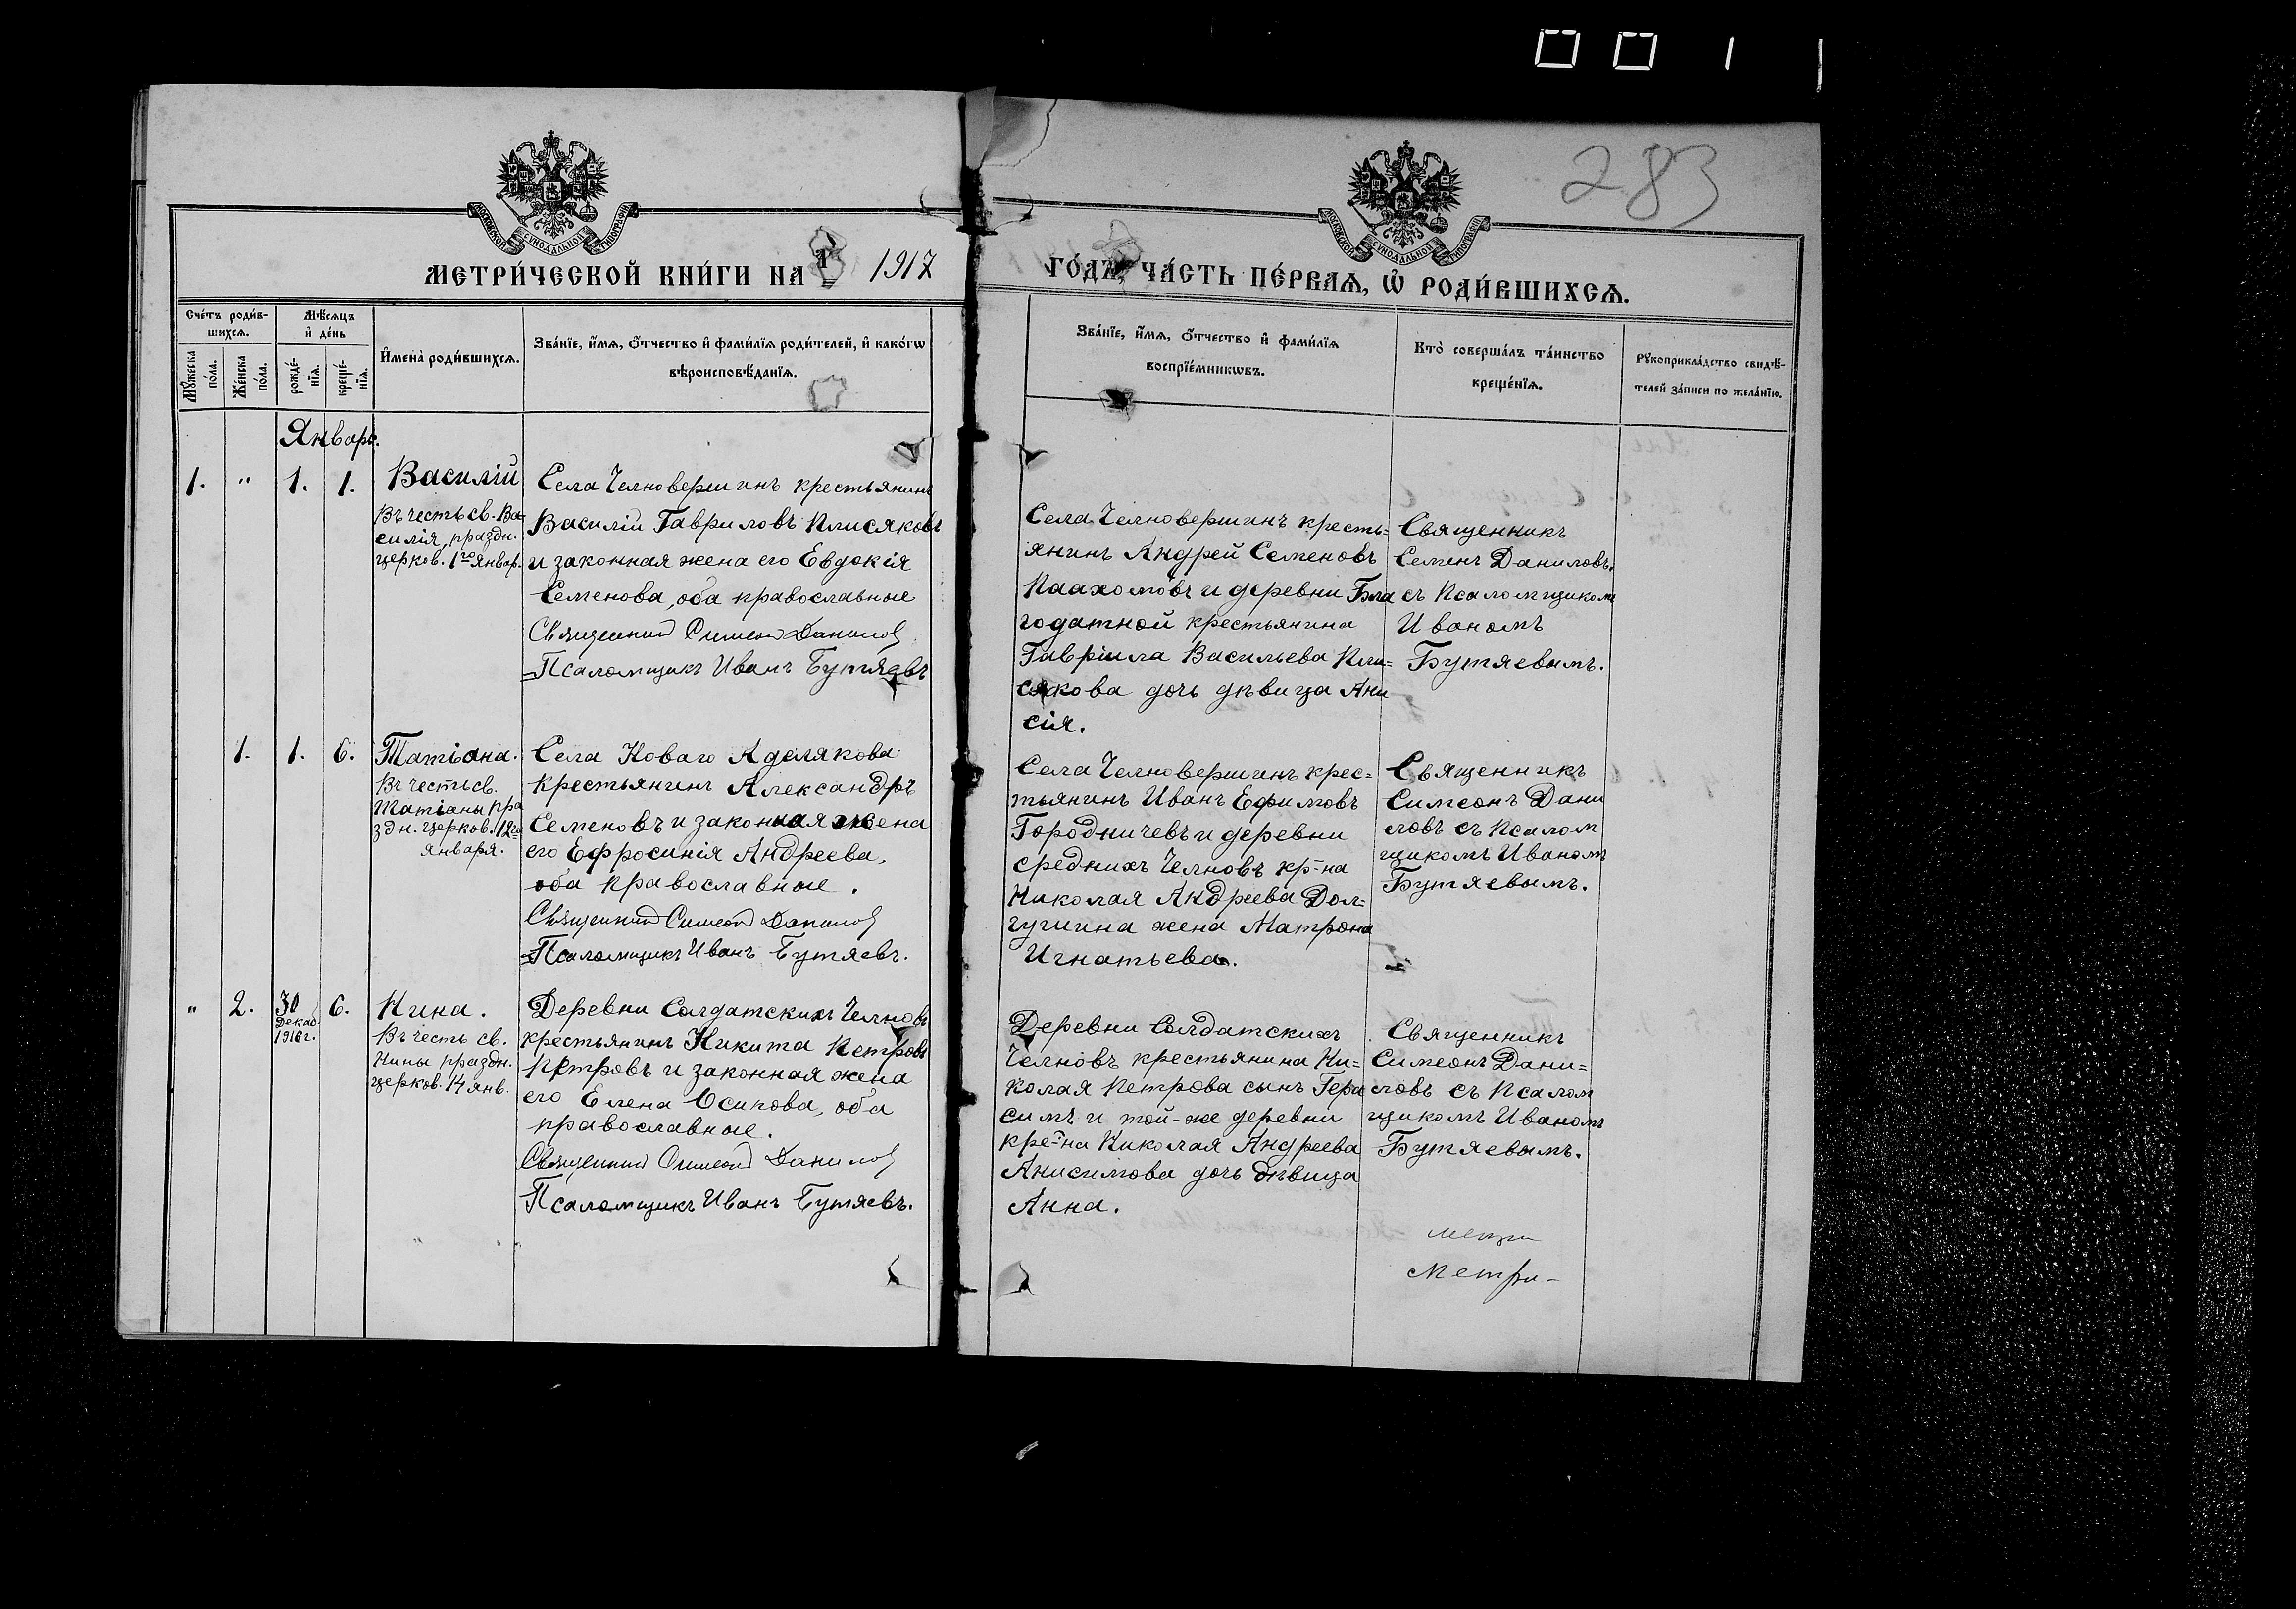 283
МОСКОВСКОЙ СѴНОДАЛЬНОЙ ТИПОГРАФІИ
МОСКОВСКОЙ СѴНОДАЛЬНОЙ ТИПОГРАФІИ
МЕТРИ́ЧЕСКОЙ КНИ́ГИ НА 1917
ГО́ДЪ, ЧА́СТЬ ПЕ́РВАѦ, Ѡ РОДИ́ВШИХСѦ.
Сче́тъ роди́в-
шихсѧ.
Мꙋ́жеска
по́ла.
Же́нска
по́ла.
Мѣ́сѧцъ
и҆ де́нь
рожде́-
нїѧ.
креще́-
нїѧ.
И҆мена̀ роди́вшихсѧ.
Зва́нїе, и҆́мѧ, ѻ҆́тчество и҆ фами́лїѧ роди́телей, и҆ како́гѡ
вѣроисповѣ́данїѧ.
Зва́нїе, и҆́мѧ, ѻ҆́тчество и҆ фами́лїѧ
воспрїе́мникѡвъ.
Кто̀ соверша́лъ та́инство
креще́нїѧ.
Рꙋкоприкла́дство свидѣ́-
телей за́писи по жела́нїю.
Январь.
1. " 1. 1.
Василій
Въ честь св. Ва-
силія, праздн.
церков. 1го январ.
Села Челновершинъ крестьянинъ
Василій Гавриловъ Плисяковъ
и законная жена его Евдокія
Семенова, оба православные
Священникъ Симеонъ Даниловъ
Псаломщикъ Иванъ Бутяевъ
Села Челновершинъ кресть=
янинъ Андрей Семеновъ
Паахомовъ и деревни Бла
годатной крестьянина
Гавріила Васильева Пли=
сякова дочь дѣвица Ани
сія.
Священникъ
Семенъ Даниловъ.
съ Псаломщиком
Иваномъ
Бутяевымъ.
1. 1. 6.
Татіана.
Въ честь св.
Татіаны пра
здн. церков. 12го
января.
Села Новаго Аделякова
крестьянинъ Александръ
Семеновъ и законная жена
его Ефросинія Андреева,
оба православные.
Священникъ Симеонъ Даниловъ
Псаломщикъ Иванъ Бутяевъ.
Села Челновершинъ крес=
тьянинъ Иванъ Ефимовъ
Городничевъ и деревни
среднихъ Челновъ кр-на
Николая Андреева Дол=
гушина жена Матрона
Игнатьева.
Священникъ
Симеонъ Дани
ловъ съ Псалом
щикомъ Иваном
Бутяевымъ.
" 2. 30 6.
Декаб.
1916 г.
Нина.
Въ честь св.
Нины праздн.
церков. 14 янв.
Деревни Солдатскихъ Челновъ
крестьянинъ Никита Петровъ
Петровъ и законная жена
его Елена Осипова, оба
православные.
Священникъ Симеонъ Даниловъ
Псаломщикъ Иванъ Бутяевъ.
Деревни Солдатскихъ
Челновъ крестьянина Ни=
колая Петрова сынъ Гера
симъ и той-же деревни
кре-на Николая Андреева
Анисимова дочь дѣвица
Анна.
Священникъ
Симеонъ Дани=
ловъ съ Псалом
щикомъ Иваномъ
Бутяевымъ.
метри
Метри-